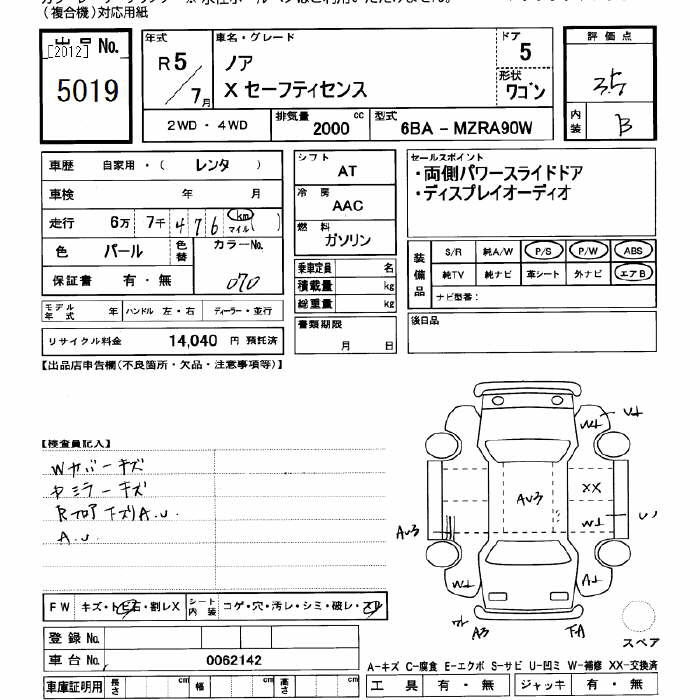 （複合機）対応用紙
出品 No.
[2012]
5019
年式
R5／7月
車名・グレード
ノア
X セーフティセンス
ドア
5
形状
ワゴン
評価点
3.5
内装
B
2WD ・ 4WD
排気量
2000 cc
型式
6BA － MZRA90W
車歴 自家用 ・（ レンタ ）
車検 年 月
走行 6万 7千 4 7 6 km マイル（ ）
色 パール
色替
カラーNo.
070
保証書 有 ・ 無
シフト
AT
冷房
AAC
燃料
ガソリン
乗車定員 名
積載量 kg
総重量 kg
セールスポイント
・両側パワースライドドア
・ディスプレイオーディオ
装備品
S/R 純A/W P/S P/W ABS
純TV 純ナビ 革シート 外ナビ エアB
ナビ型番：
モデル年式 年 ハンドル 左・右 ディーラー・並行
リサイクル料金 14,040 円 預託済
書類期限
月 日
後日品
【出品店申告欄(不良箇所・欠品・注意事項等)】
【検査員記入】
Wカバーキズ
A.U.
FW キズ・トビ石・割レX
シート内装 コゲ・穴・汚レ・シミ・破レ・スレ
登録 No.
車台 No. 0062142
車庫証明用 長さ cm 幅 cm 高さ cm
AU3
AU3
XX
W1
W1
W1
A1
A3
スペア
A-キズ C-腐食 E-エクボ S-サビ U-凹ミ W-補修 XX-交換済
工具 有 ・ 無 ジャッキ 有 ・ 無